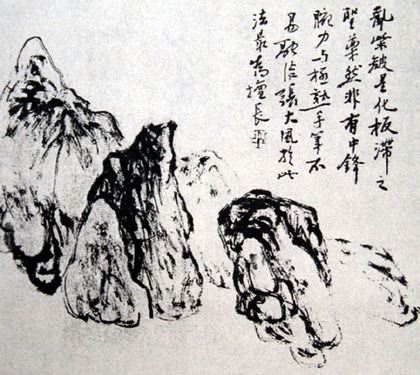 亂柴皴是化板滯之
聖藥然非有中鋒
腕力与極熟手筆不
易融洽張大風於此
法最為擅長